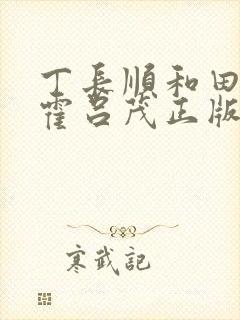 丁長順和田
霍呂茂正版
寒武記